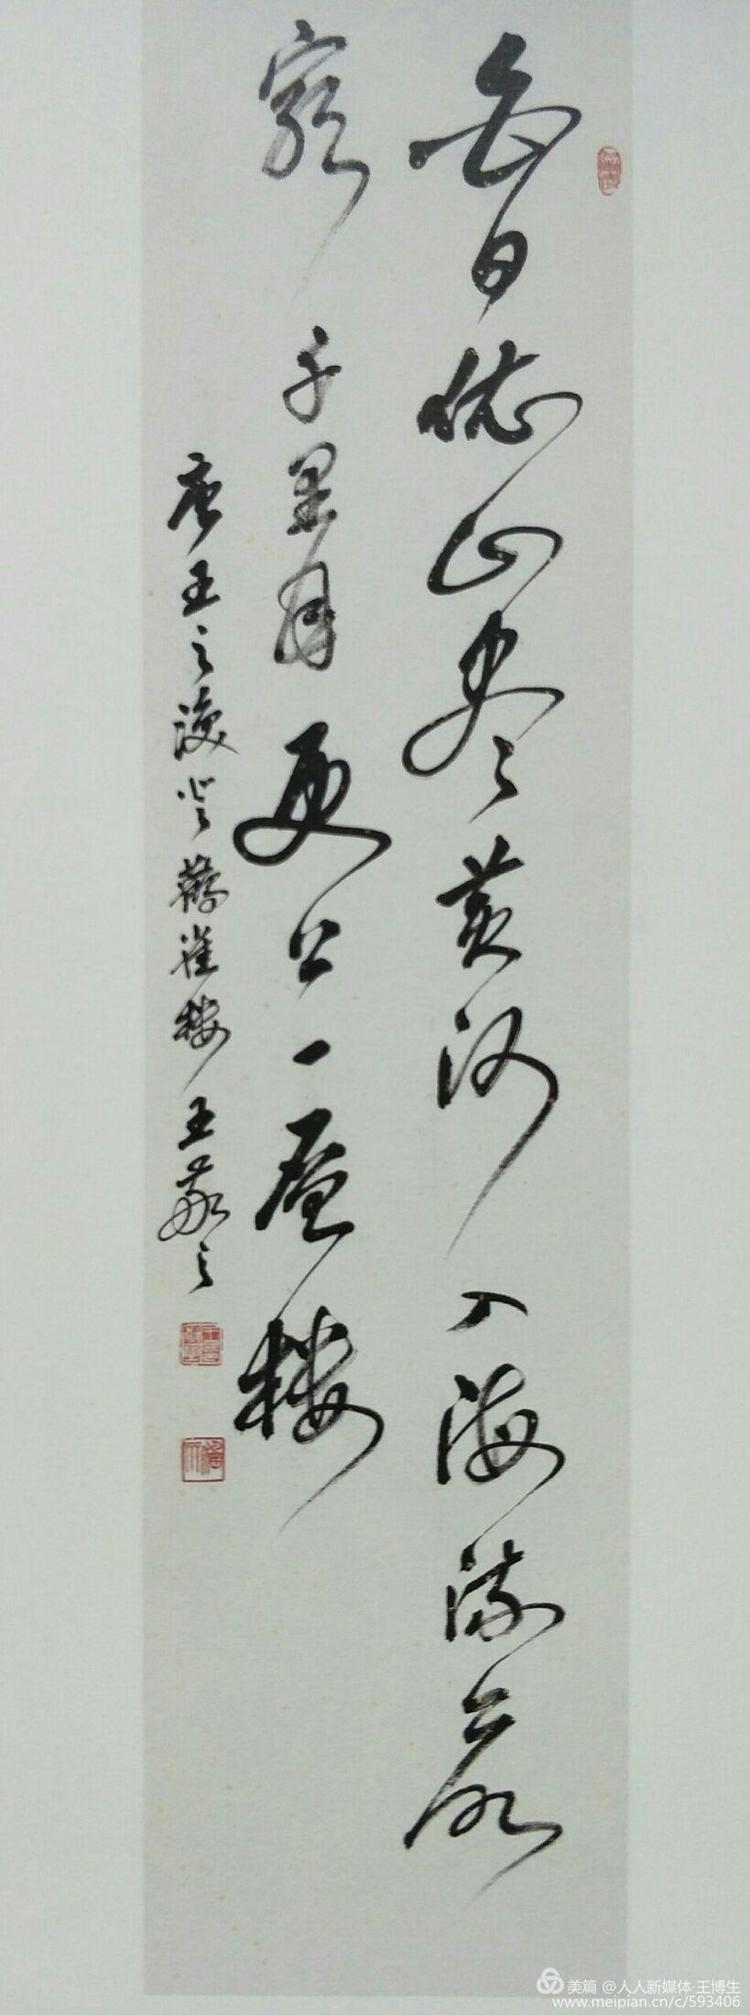 白日依山尽黄河入海流欲
穷千里目更上一层楼
唐王之涣登鹳雀楼王敬之
美篇 @人人新媒体·王博生
www.meipian.cn/c/593406